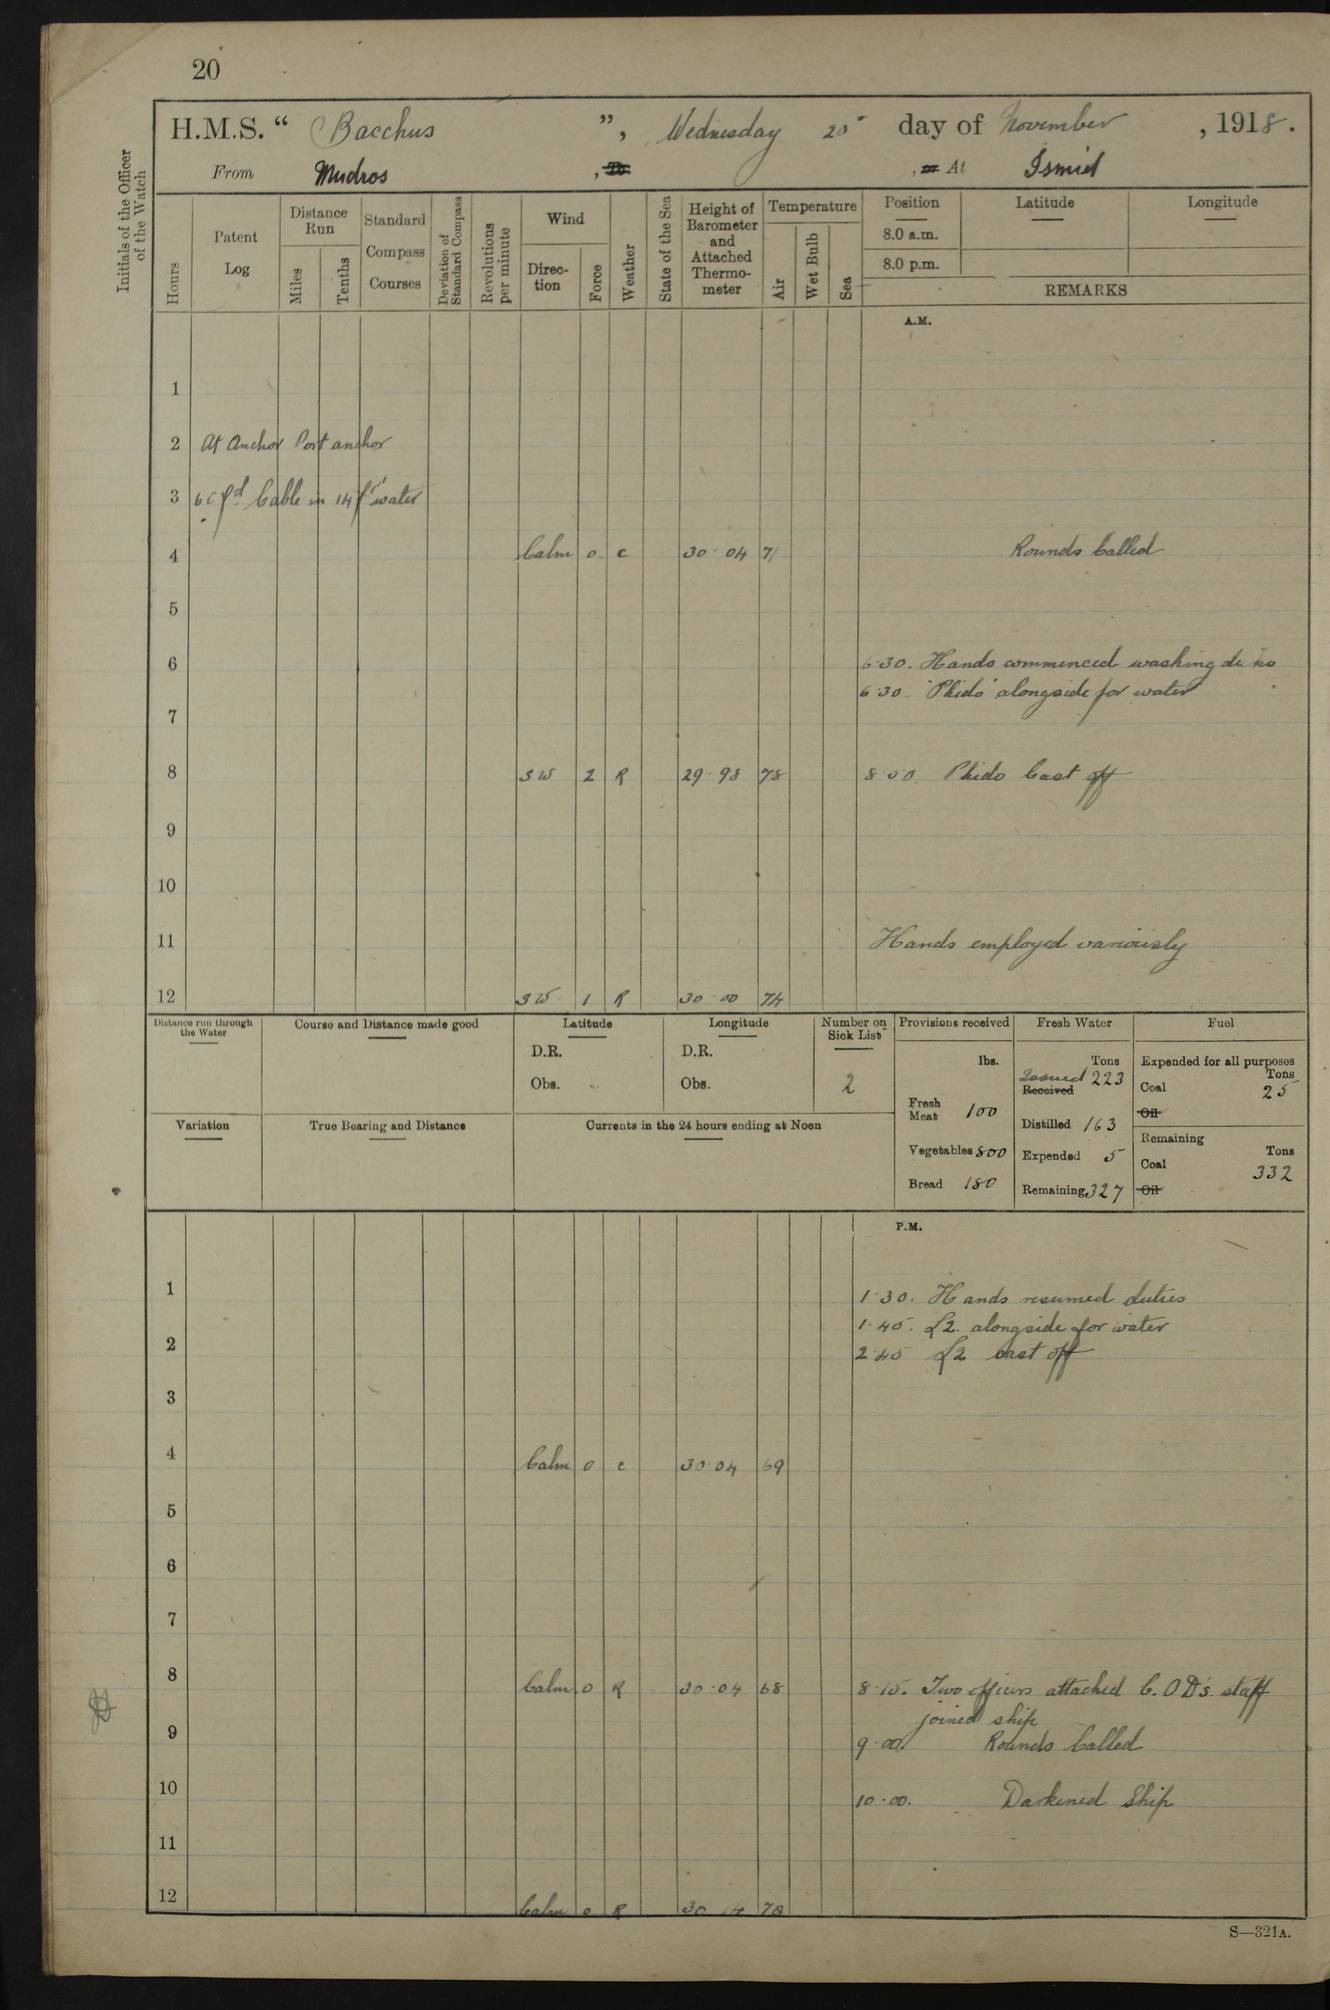 20
H.M.S. “ Bacchus ”, Wednesday 20 day of November , 1918.
From Mudros , To , or At Ismid
Initials of the Officer of the Watch
Hours
Patent Log
Distance Run
Miles
Tenths
Standard Compass Courses
Deviation of Standard Compass
Revolutions per minute
Wind
Direc-tion
Force
Weather
State of the Sea
Height of Barometer and Attached Thermo-meter
Temperature
Air
Wet Bulb
Sea
Position
Latitude
Longitude
8.0 a.m.
8.0 p.m.
REMARKS
A.M.
1
2 At Anchor Port anchor
3 Cable in 14 water
4 Calm 0 c 30·04 71 Rounds Called
5
6 6·30. Hands commenced washing decks
6·30 'Phido' alongside for water
7
8 SW 2 R 29·98 78 8·00. Phido Cast off
9
10
11 Hands employed variously
12 SW 1 R 30·00 74
Distance run through the Water
Course and Distance made good
Latitude
D.R.
Obs.
Longitude
D.R.
Obs.
Number on Sick List
2
Provisions received
lbs.
Fresh Meat 100
Vegetables 800
Bread 180
Fresh Water
Tons
Issued Received 223
Distilled 163
Expended 5
Remaining 327
Fuel
Expended for all purposes
Tons
Coal 25
Oil
Remaining
Tons
Coal 332
Oil
Variation
True Bearing and Distance
Currents in the 24 hours ending at Noon
P.M.
1 1·30. Hands resumed duties
1·45. L2. alongside for water
2 2·45 L2 cast off
3
4 Calm 0 c 30·04 69
5
6
7
8 Calm 0 R 30·04 68 8·15. Two officers attached C.O.D's. staff
joined ship
9 9·00. Rounds Called
10 10·00. Darkened Ship
11
12 Calm 0 R 30
S—321A.